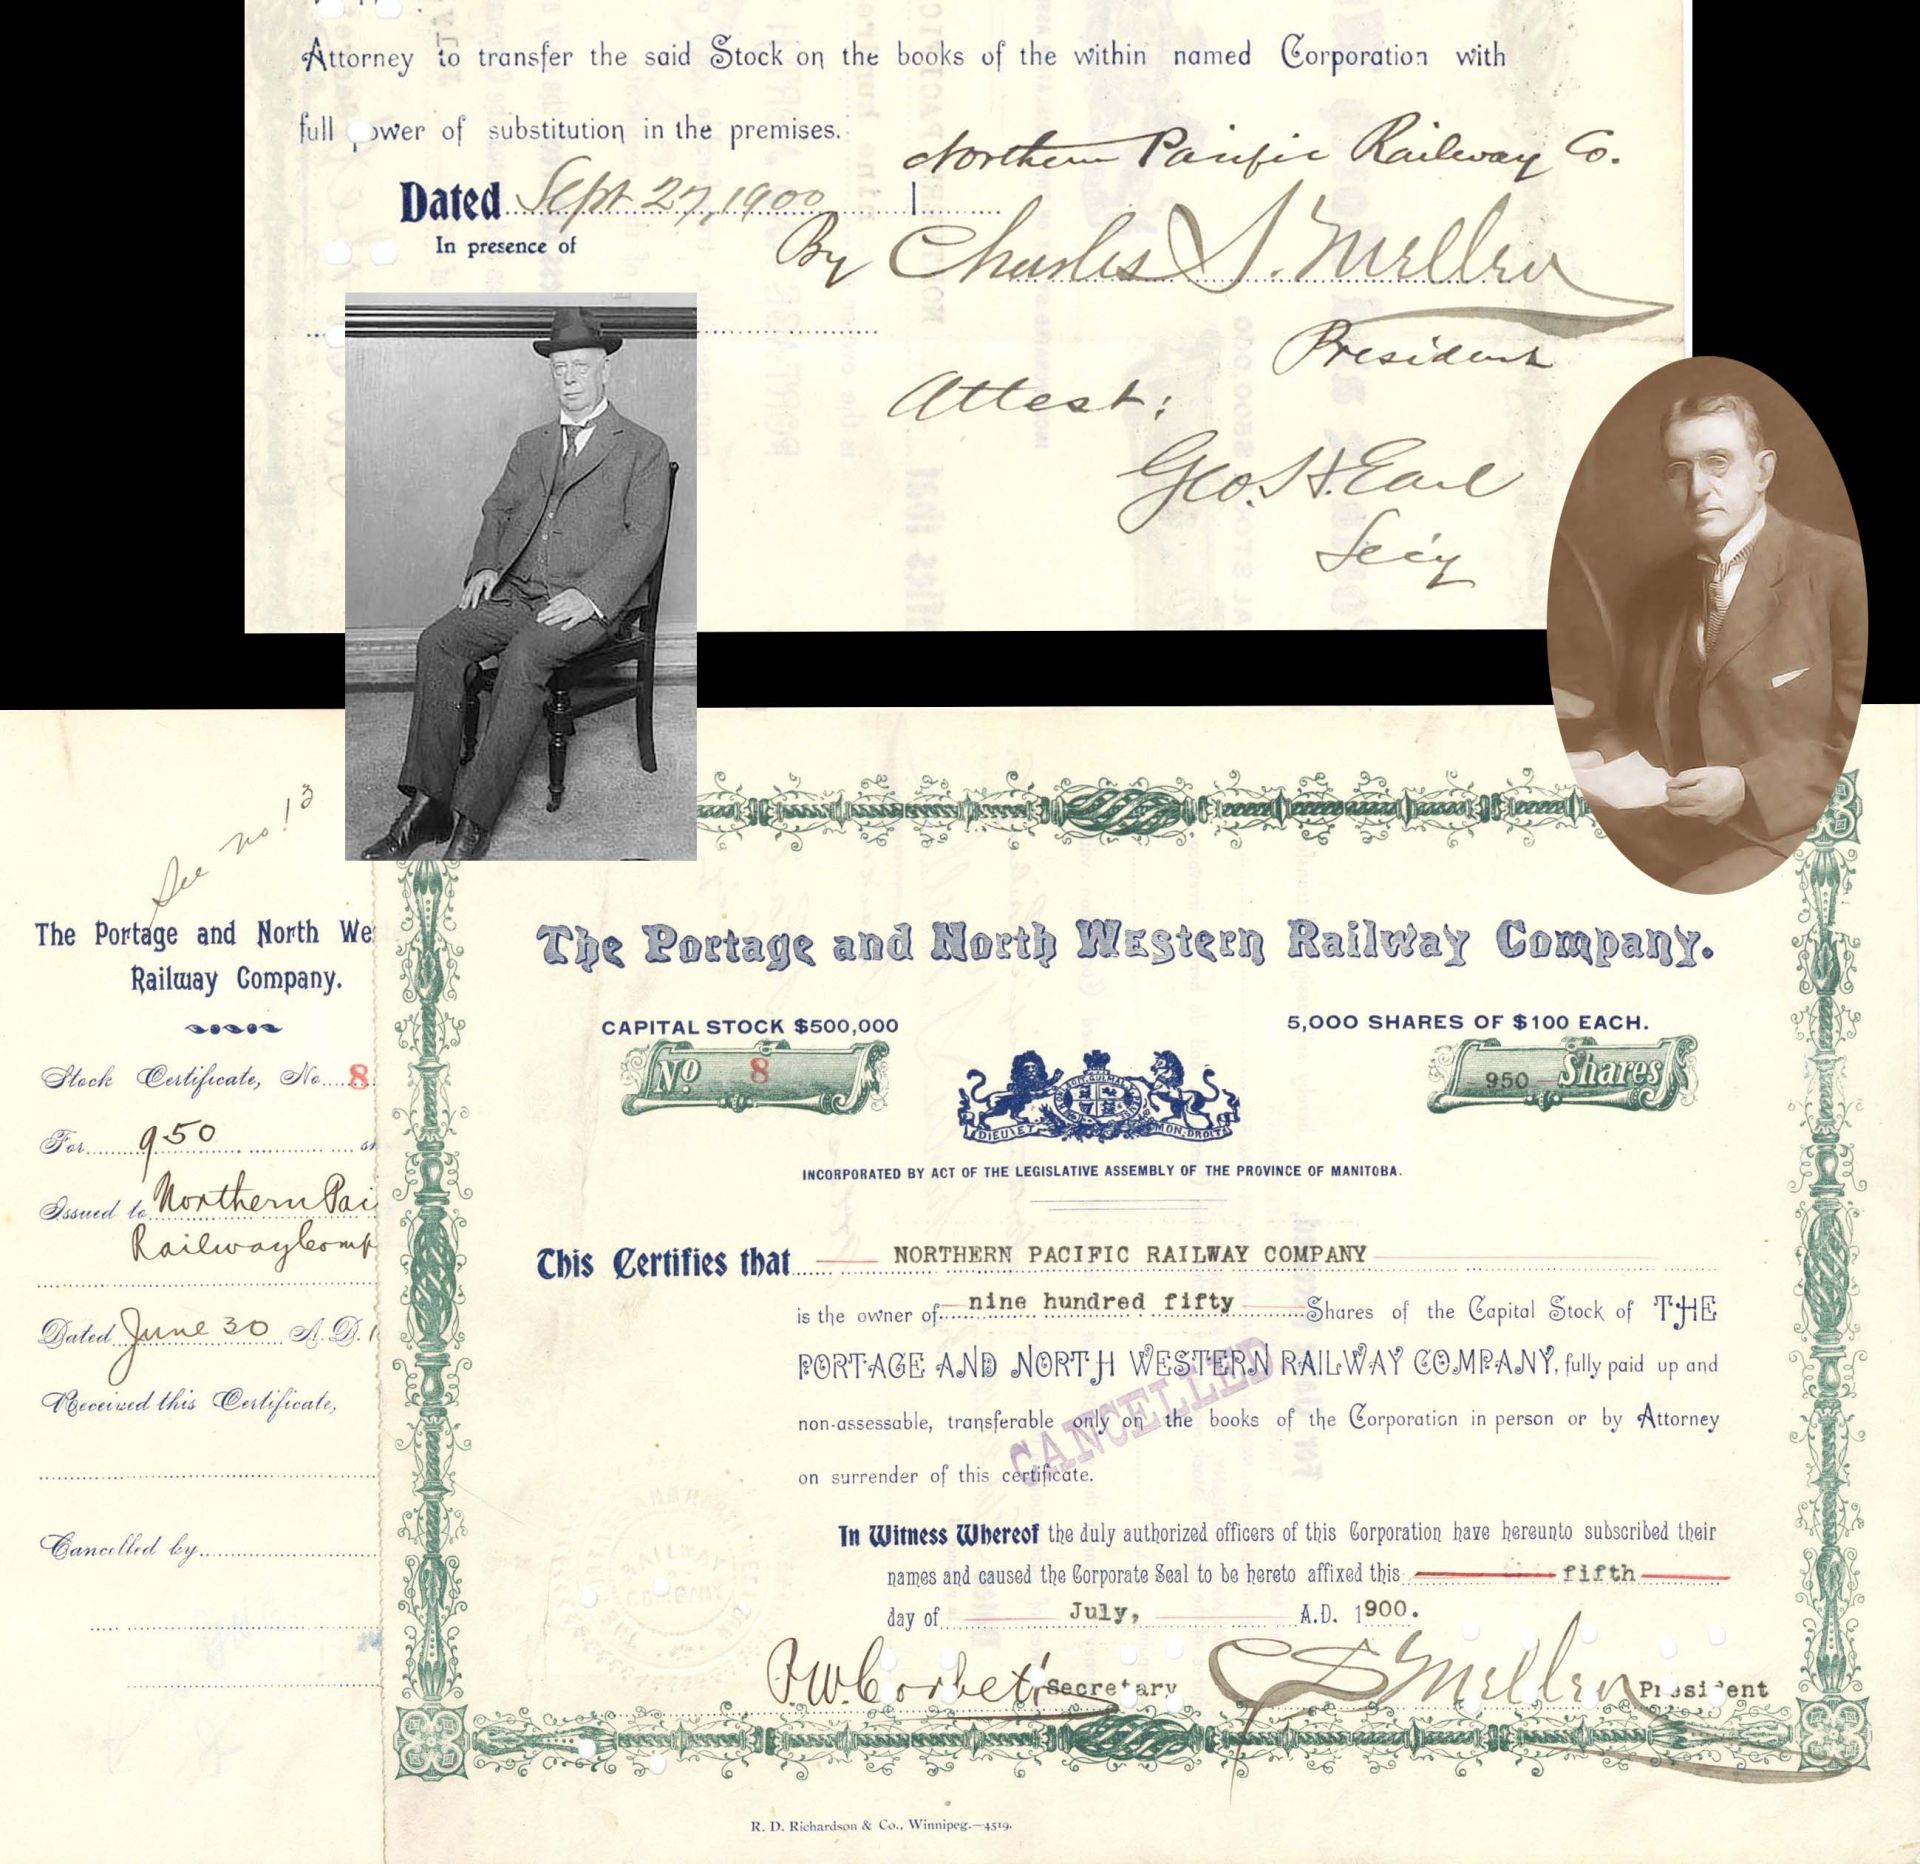 Attorney to transfer the said Stock on the books of the within named Corporation with
full power of substitution in the premises.
Northern Pacific Railway Co.
Dated Sept 27, 1900
In presence of
By Charles S. Mellen
President
Attest:
Geo. H. Earl
Sec'y
See no. 13
The Portage and North Wes
Railway Company.
Stock Certificate, No. 8
For 950
Issued to Northern Paci
Railway Comp
Dated June 30 A.D. 1
Received this Certificate,
Cancelled by
The Portage and North Western Railway Company.
CAPITAL STOCK $500,000
5,000 SHARES OF $100 EACH.
No 8
950 Shares
DIEU ET MON DROIT
INCORPORATED BY ACT OF THE LEGISLATIVE ASSEMBLY OF THE PROVINCE OF MANITOBA.
This Certifies that NORTHERN PACIFIC RAILWAY COMPANY
is the owner of nine hundred fifty Shares of the Capital Stock of THE
PORTAGE AND NORTH WESTERN RAILWAY COMPANY, fully paid up and
non-assessable, transferable only on the books of the Corporation in person or by Attorney
on surrender of this certificate.
CANCELLED
In Witness Whereof the duly authorized officers of this Corporation have hereunto subscribed their
names and caused the Corporate Seal to be hereto affixed this fifth
day of July, A.D. 1900.
RAILWAY
COMPANY
Secretary
C S Mellen President
R. D. Richardson & Co., Winnipeg.—4519.